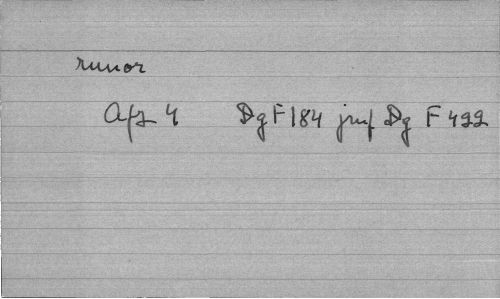 runor
Afz 4 Dg F 184 jmf Dg F 422